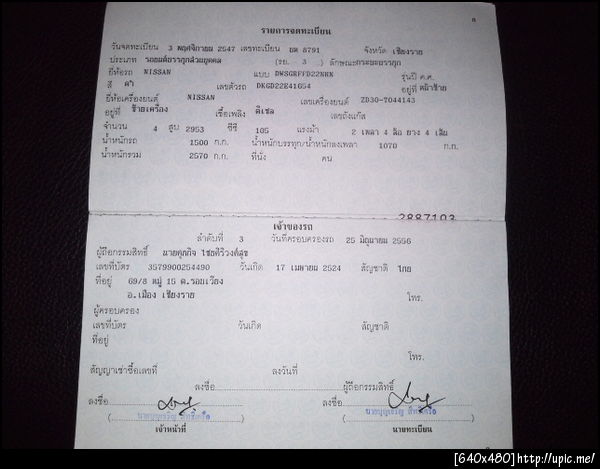 8
รายการจดทะเบียน
วันจดทะเบียน 3 พฤศจิกายน 2547 เลขทะเบียน บต 8791 จังหวัด เชียงราย
ประเภท รถยนต์บรรทุกส่วนบุคคล (รย. 3 ) ลักษณะกระบะบรรทุก
ยี่ห้อรถ NISSAN แบบ DWSGRFFD22NNN รุ่นปี ค.ศ.
สี ดำ เลขตัวรถ DKGD22E41654 อยู่ที่ หน้าซ้าย
ยี่ห้อเครื่องยนต์ NISSAN เลขเครื่องยนต์ ZD30-7044143
อยู่ที่ ข้างเครื่อง เชื้อเพลิง ดีเซล เลขถังแก๊ส
จำนวน 4 สูบ 2953 ซีซี 105 แรงม้า 2 เพลา 4 ล้อ ยาง 4 เส้น
น้ำหนักรถ 1500 ก.ก. น้ำหนักบรรทุก/น้ำหนักลงเพลา 1070 ก.ก.
น้ำหนักรวม 2570 ก.ก. ที่นั่ง คน
2887103
เจ้าของรถ
ลำดับที่ 3 วันที่ครอบครองรถ 25 มิถุนายน 2556
ผู้ถือกรรมสิทธิ์ นายศุภกิจ ไชยศิริวงศ์สุข
เลขที่บัตร 3579900254490 วันเกิด 17 เมษายน 2524 สัญชาติ ไทย
ที่อยู่ 69/8 หมู่ 15 ต.รอบเวียง
อ.เมือง เชียงราย โทร.
ผู้ครอบครอง
เลขที่บัตร วันเกิด สัญชาติ
ที่อยู่
โทร.
สัญญาเช่าซื้อเลขที่ ลงวันที่
ลงชื่อ ผู้ถือกรรมสิทธิ์
ลงชื่อ ลงชื่อ
(นายบุญเจริญ สิทธิเครือ) (นายบุญเจริญ สิทธิเครือ)
เจ้าหน้าที่ นายทะเบียน
[640x480]http://upic.me/